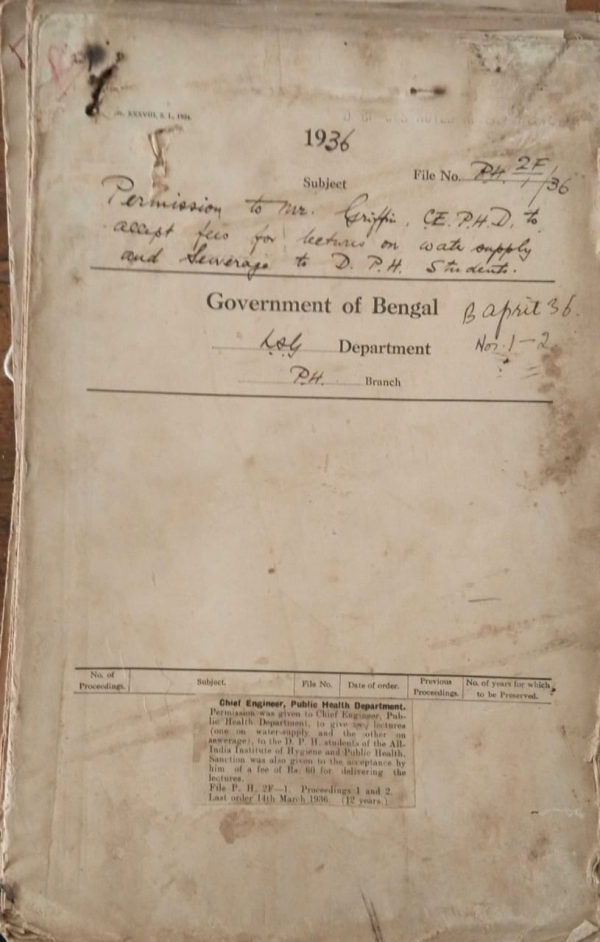 XXXVIII, S. I., 1934.
1936
Subject
File No. P.H. 2F/1/36
Permission to Mr. Griffin, C.E. P.H.D. to
accept fees for lectures on wate supply
and Sewerage to D. P. H. Students.
Government of Bengal
B april 36.
LSG Department
Nos. 1-2
P.H. Branch
No. of Proceedings. Subject. File No. Date of order. Previous Proceedings. No. of years for which to be Preserved.
Chief Engineer, Public Health Department.
Permission was given to Chief Engineer, Pub-
lic Health Department, to give two lectures
(one on water-supply and the other on
sewerage), to the D. P. H. students of the All-
India Institute of Hygiene and Public Health.
Sanction was also given to the acceptance by
him of a fee of Rs. 60 for delivering the
lectures.
File P. H. 2F—1. Proceedings 1 and 2.
Last order 14th March 1936. (12 years.)